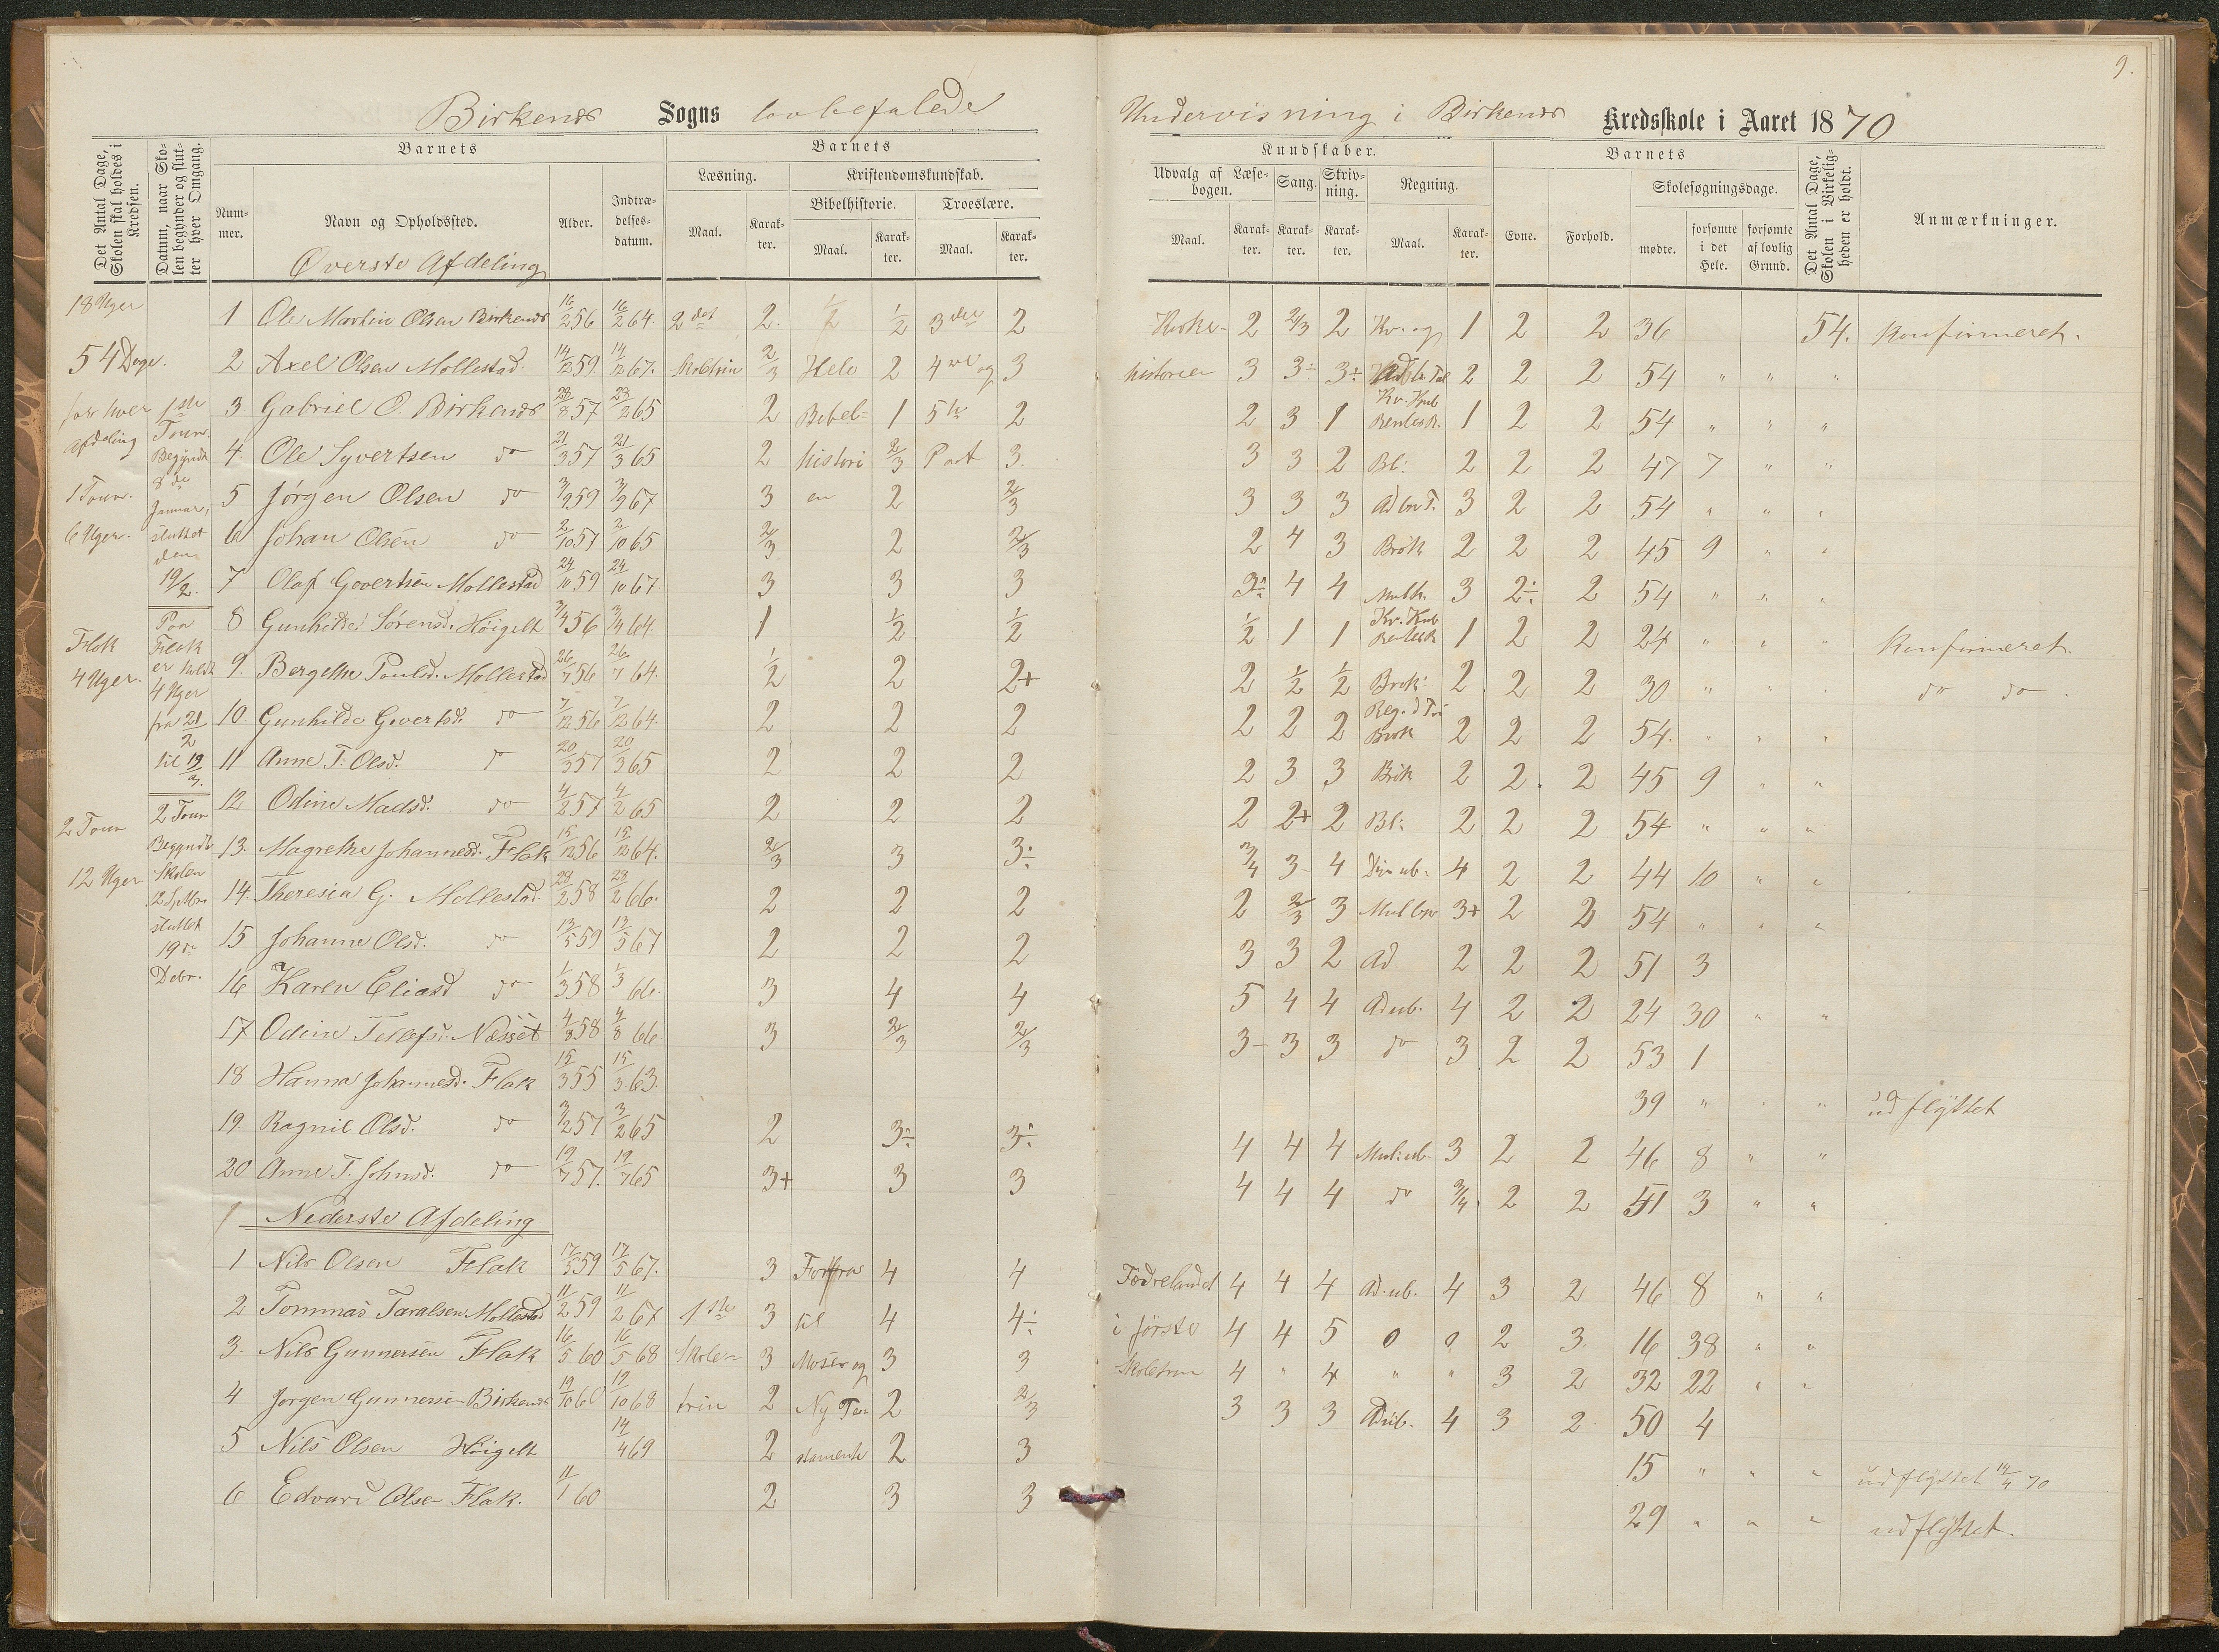 9.
Birkenes Sogns lovbefalede Undervisning i Birkenes Kredsskole i Aaret 1870
Det Antal Dage, Skolen skal holdes i Kredsen.
Datum, naar Skolen begynder og slutter hver Omgang.
Barnets
Nummer.
Navn og Opholdssted.
Alder.
Indtrædelsesdatum.
Barnets
Læsning.
Maal.
Karakter.
Kristendomskundskab.
Bibelhistorie.
Maal.
Karakter.
Troeslære.
Maal.
Karakter.
Kundskaber.
Udvalg af Læsebogen.
Maal.
Karakter.
Sang.
Karakter.
Skrivning.
Karakter.
Regning.
Maal.
Karakter.
Barnets
Evne.
Forhold.
Skolesøgningsdage.
mødte.
forsømte i det Hele.
forsømte af lovlig Grund.
Det Antal Dage, Skolen i Virkeligheden er holdt.
Anmærkninger.
18 Uger
54 Dage.
for hver
afdeling
1 Tour.
6 Uger.
Flak
4 Uger.
2 Tour
12 Uger
1ste
Tour.
Begyndt
8de
Januar,
sluttet
den
19/2.
Paa
Flak
er holdt
4 Uger
fra 21/2
til 19/3.
2 Tour
Begyndte
Skolen
12 Sptbr
sluttet
19de
Debr.
Øverste Afdeling
1 Ole Martin Olsen Birkenes 16/2 56 16/2 64. 2det 2. 1/2 1/2 3die 2 Kirke- 2 2/3 2 Kv. og 1 2 2 36 54. Konfirmeret.
2 Axel Olsen Mollestad 14/12 59 14/12 67. Skoletrin 2/3 Hele 2 4de og 3 historien 3 3÷ 3÷ 2 2 2 54 " " "
3 Gabriel O. Birkenes 28/8 57 2 Bibel= 1 5te 2 2 3 1 Kv. Kub RentesR. 1 2 2 54 " " "
4. Ole Syvertsen do 21/3 57 21/3 65 2 histori 2/3 Part 3. 3 3 2 Bl: 2 2 2 47 7 " "
5 Jørgen Olsen do 3/9 59 3/9 67 3 en 2 2/3 3 3 3 3 2 2 54 " " "
6 Johan Olsen do 2/10 57 2/10 65 2/3 2 2/3 2 4 3 Brøk 2 2 2 45 9 " "
7 Olaf Govertsen Mollestad 24/10 59 24/10 67. 3 3 3 3÷ 4 4 Mult. 3 2÷ 2 54 " " "
8 Gunhilde Sørensd. Höigilt 3/4 56 3/4 64. 1 1/2 1/2 1/2 1 1 Kv. Kub 1 2 2 24 " " " Konfirmeret.
9. Bergethe Poulsd. Mollestad 26/7 56 26/7 64. 1/2 2 2+ 2 1/2 1/2 Brøk: 2 2 2 30 " " " do do
10. Gunhilde Govertsd. do 7/12 56 7/12 64. 2 2 2 2 2 2 Reg. d Tri Brøk 2 2 2 54. " " "
11 Anne T. Olsd. do 20/3 57 20/3 65 2 2 2 2 3 3 Brök 2 2. 2 45 9 " "
12 Odine Madsd. do 4/2 57 4/2 65 2 2 2 2 2+ 2 Bl: 2 2 2 54 " " "
13. Magrethe Johannesd. Flak 15/12 56 15/12 64. 2/3 3 3÷ 3/4 3- 4 Div ub. 4 2 2 44 10 " "
14. Theresia G. Mollestad. 28/2 58 28/2 66. 2 2 2 2 2/3 3 3+ 2 2 54 " " "
15 Johanne Olsd. do 13/5 59 13/5 67 2 2 2 3 3 2 Ad. 2 2 2 51 3
16 Karen Eliasd do 1/3 58 1/3 66. 3 4 4 5 4 4 Ad ub. 4 2 2 24 30 " "
17 Odine Tellefsd. Næsset 4/8 58 4/8 66. 3 2/3 2/3 3- 3 3 do 3 2 2 53 1
18 Hanna Johannesd. Flak 15/3 55 15/3 63. 39 " " " udflyttet
19. Ragnil Olsd. do 3/2 57 3/2 65 2 3÷ 3÷ 4 4 4 Mul: ub. 3 2 2 46 8 " "
20 Anne T. Johnsd. do 19/7 57. 19/7 65 3+ 3 3 4 4 4 do 3/4. 2 2 51 3 " "
Nederste Afdeling
1 Nils Olsen Flak 17/5 59 17/5 67. 3 Forfra 4 4 Fædrelandet 4 4 4 Ad. ub. 4 3 2 46 8 " "
2 Tommas Taralsen Mollestad 11/2 59 11/2 67 1ste 3 til 4 4÷ i förste 4 4 5 0 0 2 3. 16 38 " "
3. Nils Gunnersen Flak 16/5 60 16/5 68 Skole= 3 Moses og 3 3 Skoletrin 4 " 4 " " 3 2 32 22 " "
4 Jørgen Gunnersen Birkenes 19/10 60 19/10 68 trin 2 Ny Te 2 2/3 3 3 3 Ad ub. 4 3 2 50 4
5 Nils Olsen Höigilt 14/4 69 2 stamente 2 3 15 " " " udflyttet 14/4 70
6 Edvard Olsen Flak. 11/1 60 2 3 3 29 " " " udflyttet.